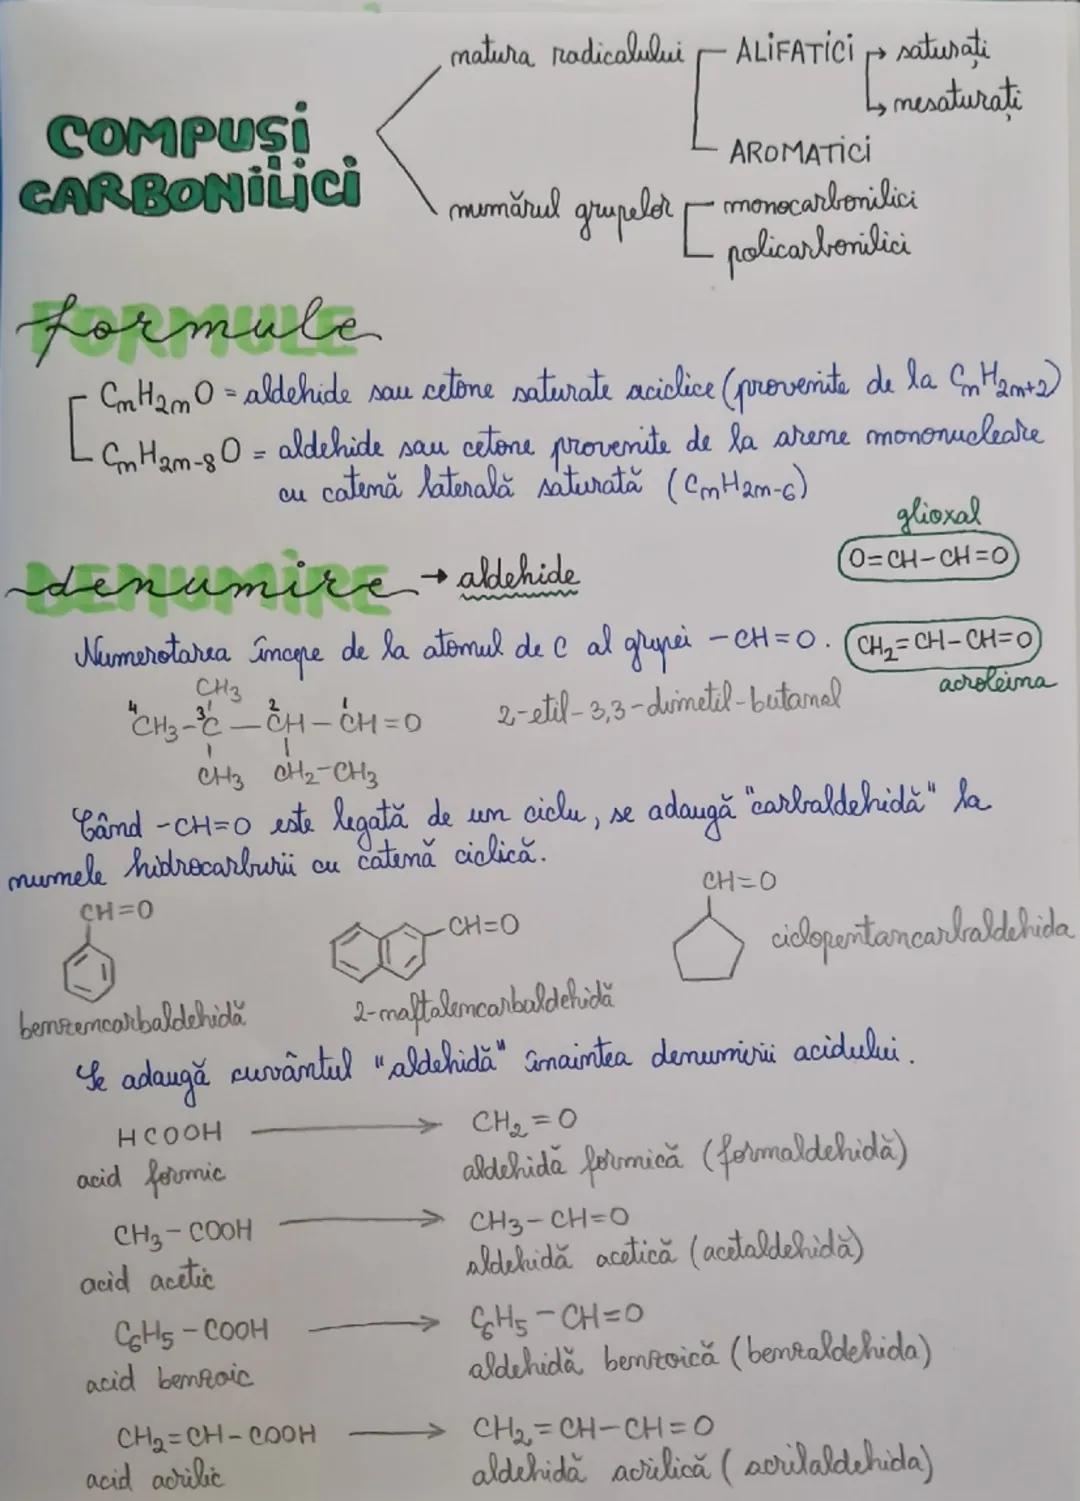 COMPUȘI
CARBONILICI
natura radicalului
ALIFATICI → saturați
↳ nesaturați
AROMATICI
numărul grupelor
monocarbonilici
policarbonilici
FORMULE
formule
CnH2nO = aldehide sau cetone saturate aciclice (provenite de la CnH2n+2)
CnH2n-8O = aldehide sau cetone provenite de la arene mononucleare
cu catenă laterală saturată (CnH2n-6)
glioxal
O=CH-CH=O
DENUMIRE
denumire → aldehide
Numerotarea începe de la atomul de C al grupei -CH=O.
CH2=CH-CH=O
acroleina
CH3
4 3 2 1
CH3-C-CH-CH=O
2-etil-3,3-dimetil-butanal
CH3 CH2-CH3
Când -CH=O este legată de un ciclu, se adaugă "carbaldehidă" la
numele hidrocarburii cu catenă ciclică.
CH=O
benzencarbaldehidă
-CH=O
2-naftalencarbaldehidă
CH=O
ciclopentancarbaldehida
Se adaugă cuvântul "aldehidă" înaintea denumirii acidului.
HCOOH → CH2=O
acid formic aldehidă formică (formaldehidă)
CH3-COOH → CH3-CH=O
acid acetic aldehidă acetică (acetaldehidă)
C6H5-COOH → C6H5-CH=O
acid benzoic aldehidă benzoică (benzaldehida)
CH2=CH-COOH → CH2=CH-CH=O
acid acrilic aldehidă acrilică (acrilaldehida)